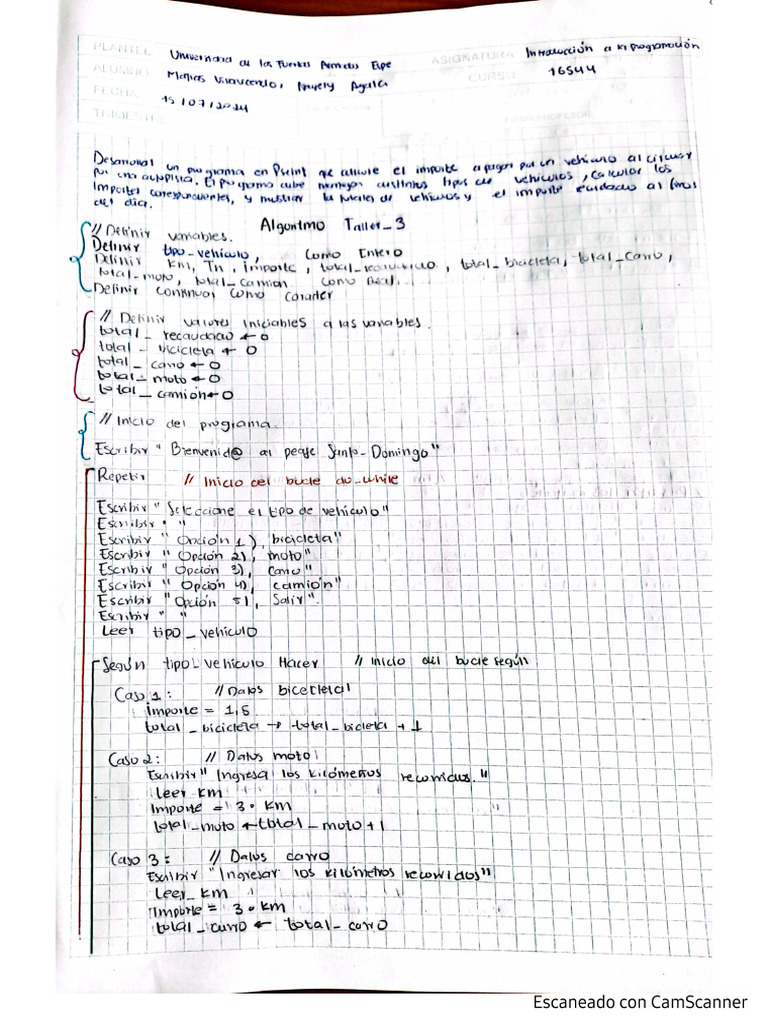 PLANTEL Universidad de las Fuerzas Armadas Espe ASIGNATURA Introducción a la programación
ALUMNO Matias Vivavicendo, Nayely Ayala CURSO 16544
FECHA 15/07/2024
TRIMESTRE
Desarrollar un programa en Pseint que calcule el importe a pagar por un vehículo al circular
por una autopista. El programa debe manejar distintos tipos de vehículos, calcular los
importes correspondientes, y mostrar los totales de vehículos y el importe recaudado al final
del día.
Algoritmo Taller_3
// Definir variables.
Definir tipo_vehículo, como Entero
Definir km, Tn, importe, total_recaudado, total_bicicleta, total_carro,
total_moto, total_camion como Real.
Definir continuar como Caracter
// Definir valores iniciables a las variables.
total_recaudado ← 0
total_bicicleta ← 0
total_carro ← 0
total_moto ← 0
total_camión ← 0
// Inicio del programa.
Escribir "Bienvenid@ al peaje Santo-Domingo"
Repetir // Inicio del bucle do..while
Escribir "Seleccione el tipo de vehículo"
Escribir " "
Escribir "Opción 1), bicicleta"
Escribir "Opción 2), moto"
Escribir "Opción 3), carro"
Escribir "Opción 4), camión"
Escribir "Opción 5), Salir".
Escribir " "
Leer tipo_vehículo
Según tipo_vehículo Hacer // Inicio del bucle según
Caso 1: // Datos bicecletal
importe = 1,5
total_bicicleta → total_bicleta + 1
Caso 2: // Datos moto
Escribir "Ingresa los kilómetros recorridos."
Leer km
Importe = 3 * km
total_moto ← total_moto + 1
Caso 3: // Datos carro
Escribir "Ingresar los kilómetros recorridos"
Leer_km
Importe = 3 * km
total_carro ← total_carro
Escaneado con CamScanner